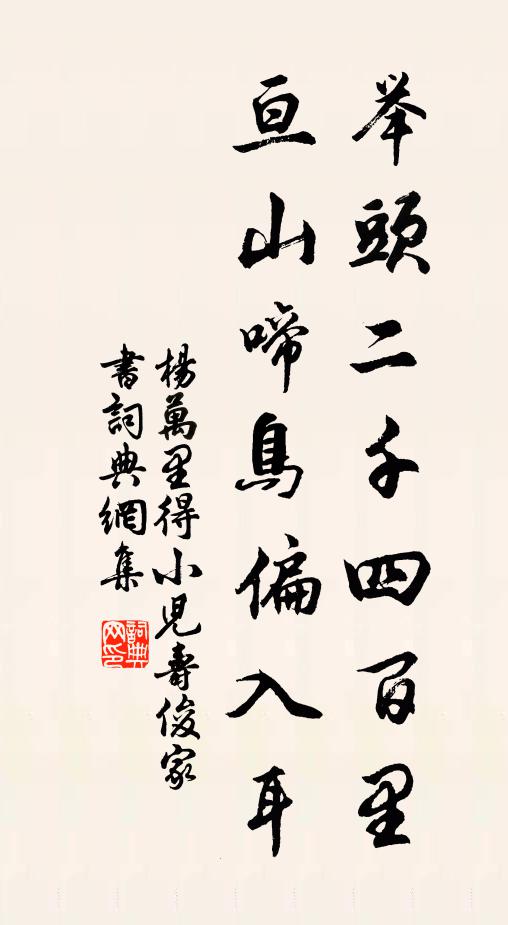 举頭二千四百里
亘山啼鳥偏入耳
楊萬里得小兒壽俊家
書詞典網集
詞典网印